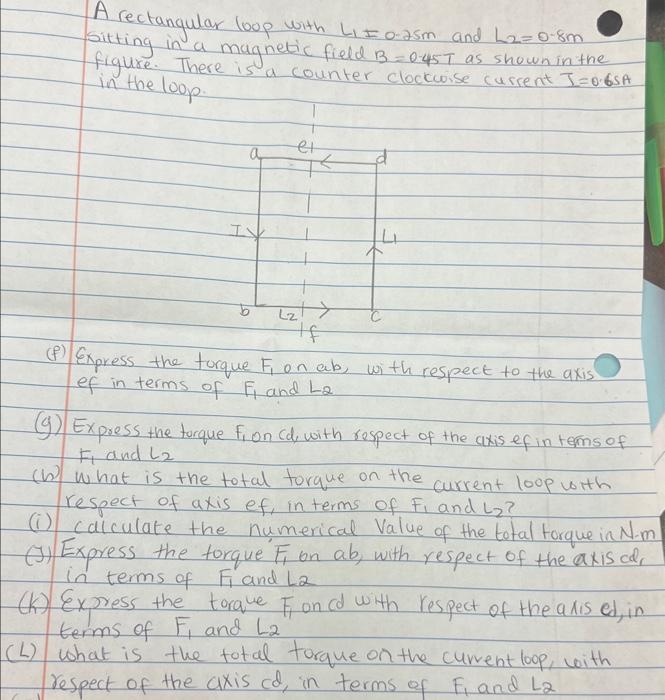 A rectangular loop with L1 = 0.25m and L2 = 0.8m
sitting in a magnetic field B = 0.45T as shown in the
figure. There is a counter clockwise current I = 0.65A
in the loop.
a e d
I L1
b L2 f c
(f) Express the torque F1 on ab, with respect to the axis
ef in terms of F1 and L2
(g) Express the torque F1 on cd, with respect of the axis ef in terms of
F1 and L2
(h) what is the total torque on the current loop with
respect of axis ef, in terms of F1 and L2?
(i) calculate the numerical Value of the total torque in N.m
(J) Express the torque F1 on ab, with respect of the axis cd,
in terms of F1 and L2
(k) Express the torque F1 on cd with respect of the axis cd, in
terms of F1 and L2
(L) what is the total torque on the current loop, with
respect of the axis cd, in terms of F1 and L2